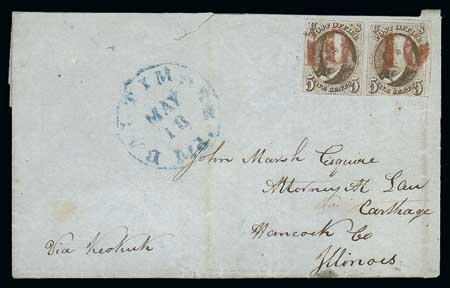 POST OFFICE POST OFFICE
5 FIVE CENTS 5 5 FIVE CENTS 5
BALTIMORE Md.
MAY
18
John Marsh Esquire
Attorney At Law
Carthage
Hancock Co
Illinois
Via Keokuk